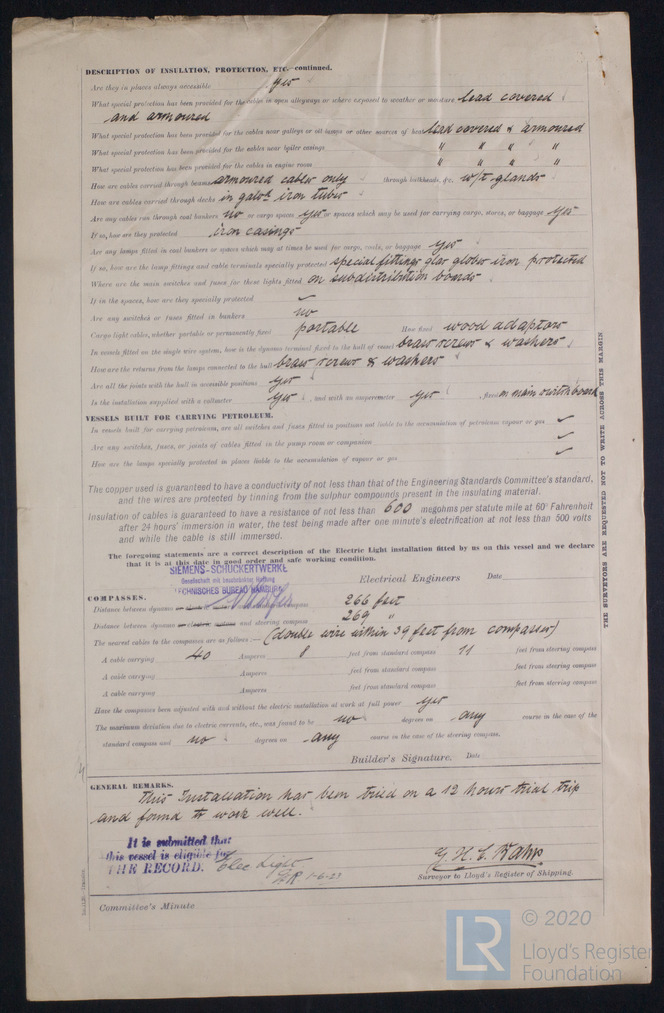 DESCRIPTION OF INSULATION, PROTECTION, ETC. continued.
Are they in places always accessible yes
What special protection has been provided for the cables in open alleyways or where exposed to weather or moisture lead covered
and armoured
What special protection has been provided for the cables near galleys or oil lamps or other sources of heat lead covered & armoured
What special protection has been provided for the cables near boiler casings " " " "
What special protection has been provided for the cables in engine room " " " "
How are cables carried through beams armoured cables only through bulkheads, &c. w/t glands
How are cables carried through decks in galvd. iron tubes
Are any cables run through coal bunkers no or cargo spaces yes or spaces which may be used for carrying cargo, stores, or baggage yes
If so, how are they protected iron casings
Are any lamps fitted in coal bunkers or spaces which may at times be used for cargo, coals, or baggage yes
If so, how are the lamp fittings and cable terminals specially protected special fittings glas globes iron protected
Where are the main switches and fuses for these lights fitted on subdistribution boards
If in the spaces, how are they specially protected ✓
Are any switches or fuses fitted in bunkers no
Cargo light cables, whether portable or permanently fixed portable How fixed wood adaptors
In vessels fitted on the single wire system, how is the dynamo terminal fixed to the hull of vessel brass screws & washers
How are the returns from the lamps connected to the hull brass screws & washers
Are all the joints with the hull in accessible positions yes
Is the installation supplied with a voltmeter yes, and with an amperemeter yes, fixed on main switchboard
VESSELS BUILT FOR CARRYING PETROLEUM.
In vessels built for carrying petroleum, are all switches and fuses fitted in positions not liable to the accumulation of petroleum vapour or gas ✓
Are any switches, fuses, or joints of cables fitted in the pump room or companion ✓
How are the lamps specially protected in places liable to the accumulation of vapour or gas ✓
The copper used is guaranteed to have a conductivity of not less than that of the Engineering Standards Committee's standard,
and the wires are protected by tinning from the sulphur compounds present in the insulating material.
Insulation of cables is guaranteed to have a resistance of not less than 600 megohms per statute mile at 60° Fahrenheit
after 24 hours' immersion in water, the test being made after one minute's electrification at not less than 500 volts
and while the cable is still immersed.
The foregoing statements are a correct description of the Electric Light installation fitted by us on this vessel and we declare
that it is at this date in good order and safe working condition.
SIEMENS-SCHUCKERTWERKE
Gesellschaft mit beschränkter Haftung
TECHNISCHES BUREAU HAMBURG
Electrical Engineers Date
COMPASSES.
Distance between dynamos or electric motors and standard compass 266 feet
Distance between dynamos or electric motors and steering compass 269 "
The nearest cables to the compasses are as follows:— (double wire within 39 feet from compasses)
A cable carrying 40 Amperes 8 feet from standard compass 11 feet from steering compass
A cable carrying Amperes feet from standard compass feet from steering compass
A cable carrying Amperes feet from standard compass feet from steering compass
Have the compasses been adjusted with and without the electric installation at work at full power yes
The maximum deviation due to electric currents, etc., was found to be no degrees on any course in the case of the
standard compass and no degrees on any course in the case of the steering compass.
Builder's Signature. Date
GENERAL REMARKS.
This Installation has been tried on a 12 hours trial trip
and found to work well.
It is submitted that
this vessel is eligible for
THE RECORD. Elec Light
1-6-23
G. H. C. Bahrs
Surveyor to Lloyd's Register of Shipping.
Committee's Minute
THE SURVEYORS ARE REQUESTED NOT TO WRITE ACROSS THIS MARGIN
LR
© 2020
Lloyd's Register
Foundation